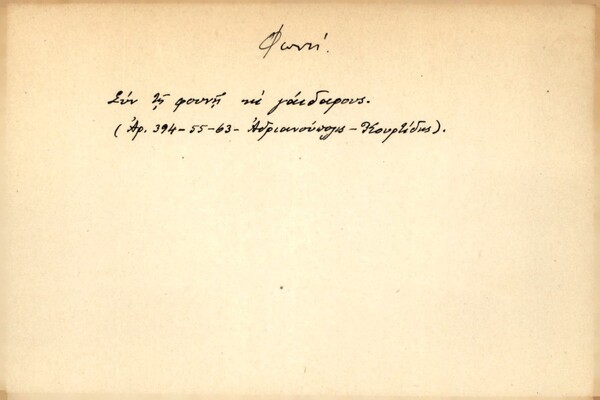 Φωνή.
Σύν τῇ φουνῇ κὶ γάιδαρους.
(Ἀρ. 394-55-63- Ἀδριανούπολις - Κουρτίδης).